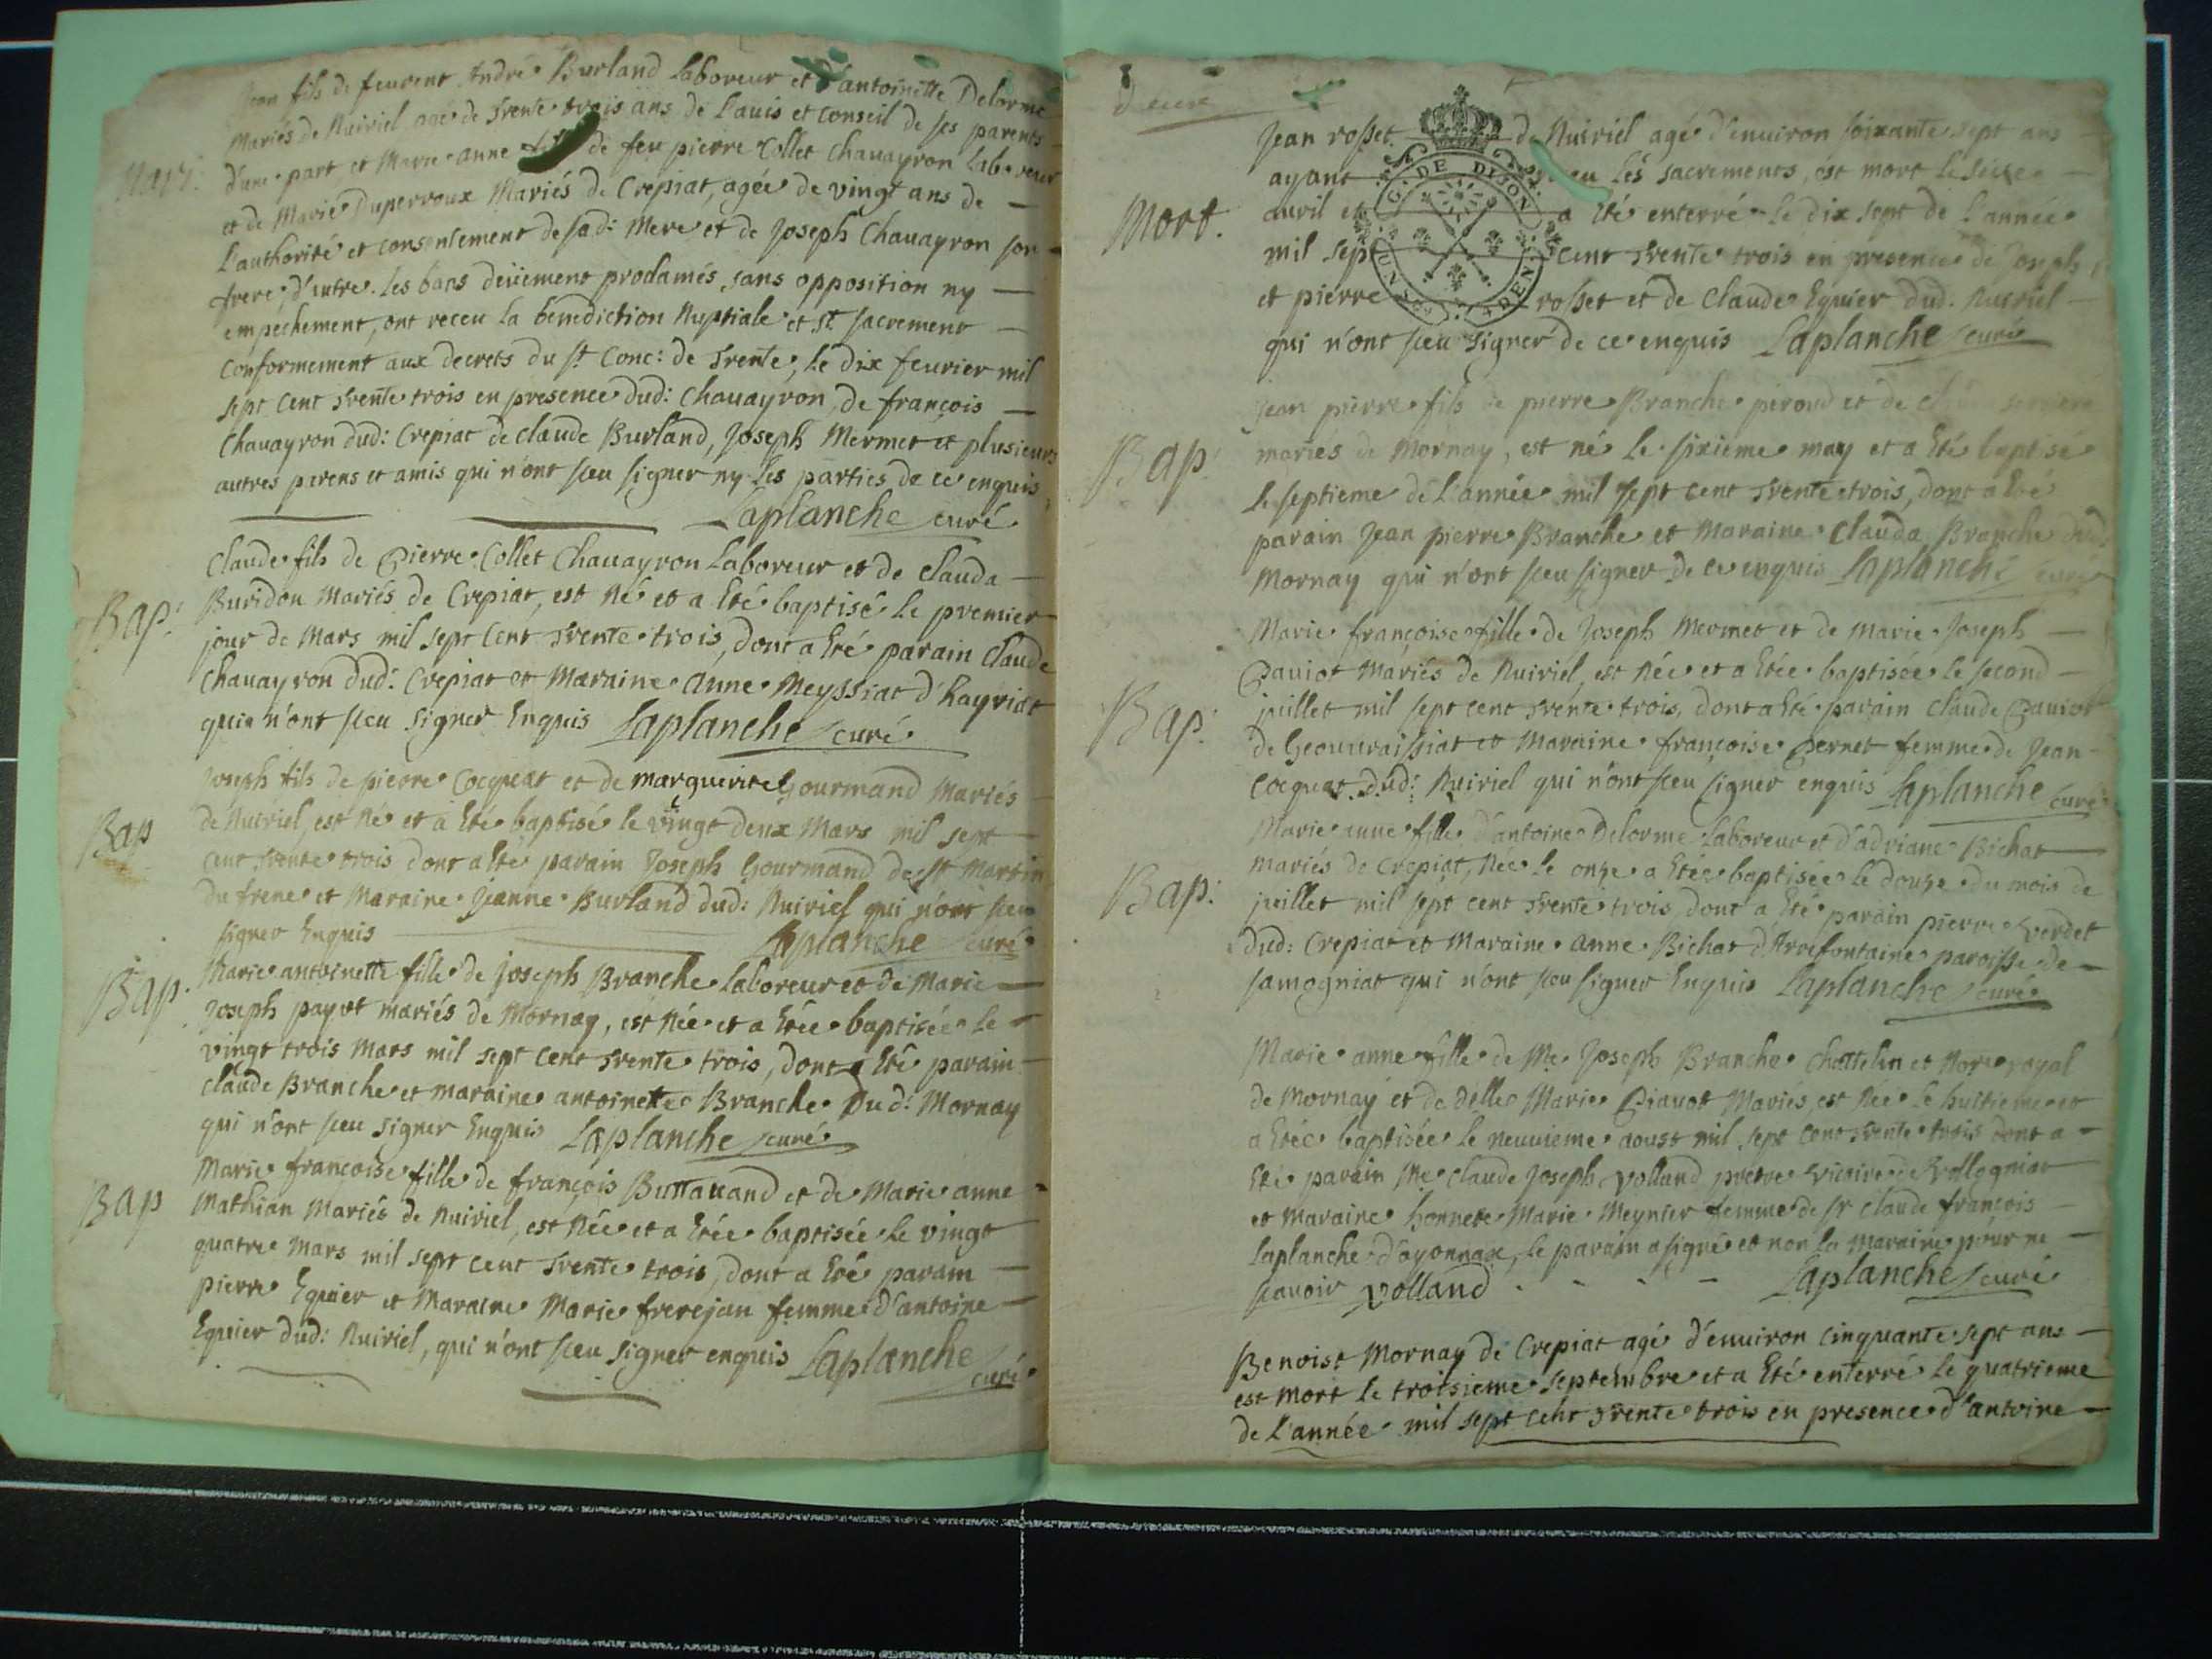 Jean fils de feuvent André Burland Laboreur et d'antoinette Delorme
Mariés de Nuiriel agé de Trente trois ans de L'auis et conseil de ses parents
Mari:
d'une part et Marie anne de feu pierre Collet Chauayron Laboreur
et de Marie Dupervoux Mariés de Crepiat, agée de vingt ans de
L'authorité et consentement de sad: Mere et de Joseph Chauayron son
frere, d'autre. Les bans deüement proclamés, sans opposition ny
empechement, ont receu la benediction Nuptiale et st sacrement
Conformement aux decrets du st Conc: de Trente, le dix feurier mil
sept Cent Trente trois en presence dud: Chauayron, de françois
Chauayron dud: Crepiat de claude Burland, Joseph Mermet et plusieurs
autres parens et amis qui n'ont sceu signer ny les parties de ce enquis
Laplanche curé
Claude fils de Pierre Collet Chauayron Laboreur et de Clauda
Bap:
Buridon Mariés de Crepiat, est Né et a Eté baptisé le premier
jour de Mars mil sept Cent Trente trois, dont a Eté parain Claude
Chauayron dud: Crepiat et Maraine Anne Meyssiat d'Hayriat
qui n'ont sceu signer Enquis Laplanche curé
Joseph fils de pierre Cocquat et de marguerite Gourmand Mariés
Bap
de Nuiriel, est Né et a Eté baptisé le vingt deux Mars mil sept
cent Trente trois dont a Eté parain Joseph Gourmand de St Martin
du frene et Maraine Jeanne Burland dud: Nuiriel qui n'ont sceu
signer Enquis Laplanche curé
Bap.
Marie antoinette fille de Joseph Branche Laboreur et de Marie
Joseph payot mariés de Mornay, est Née et a Etée baptisée le
vingt trois Mars mil sept cent Trente trois, dont a Eté parain
claude Branche et maraine antoinette Branche Dud: Mornay
qui n'ont sceu signer Enquis Laplanche curé
Marie françoise fille de françois Buttauand et de Marie anne
Bap
Mathian Mariés de Nuiriel, est Née et a Etée baptisée le vingt
quatre Mars mil sept cent Trente trois, dont a Eté parain
pierre Eguier et Maraine Marie frerejan femme d'antoine
Eguier dud: Nuiriel, qui n'ont sceu signer enquis Laplanche
curé
deux
G. DE DIJON
Jean rosset de Nuiriel agé d'enuiron soixante sept ans
ayant les sacrements, est mort le seize
Mort.
auril et a Eté enterré le dix sept de l'année
mil sept cent Trente trois en presence de Joseph
et pierre rosset et de Claude Eguier dud. Nuiriel
qui n'ont sceu signer de ce enquis Laplanche curé
Jean pierre fils de pierre Branche peroud et de
Bap:
mariés de Mornay, est né le sixieme may et a Eté baptisé
le septieme de l'année mil sept cent Trente trois, dont a Eté
parain Jean pierre Branche et Maraine Clauda Branche dud:
Mornay qui n'ont sceu signer de ce enquis Laplanche curé
Marie françoise fille de Joseph Mermet et de Marie Joseph
Pauiot Mariés de Nuiriel, est Née et a Etée baptisée le second
Bap:
juillet mil sept cent Trente trois, dont a Eté parain Claude Pauiot
de Geouuraissiat et Maraine françoise Pernet femme de Jean
Cocquat dud: Nuiriel qui n'ont sceu signer enquis Laplanche curé
Marie anne fille d'antoine Delorme Laboreur et d'adriane Bichat
Bap:
mariés de Crepiat, Née le onze a Etée baptisée le douze du mois de
juillet mil sept cent Trente trois, dont a Eté parain pierre Verdet
dud: Crepiat et Maraine anne Bichat d'Arcefontaine paroisse de
Samogniat qui n'ont sceu signer Enquis Laplanche curé
Marie anne fille de Me Joseph Branche Chattelin et Nore royal
de Mornay et de delle Marie Piauot Mariés, est Née le huitieme et
a Etée baptisée le neuuieme aoust mil sept cent Trente trois dont a
Eté parain Me Claude Joseph Volland pretre vicaire de Vollogniat
et Maraine honnete Marie Meynier femme de sr Claude françois
Laplanche d'ayonnax, le parain a signé et non la Maraine pour ne
scauoir Volland Laplanche curé
Benoist Mornay de Crepiat agé d'enuiron Cinquante sept ans
est mort le troisieme Septembre et a Eté enterré le quatrieme
de L'année mil sept cent Trente trois en presence d'antoine